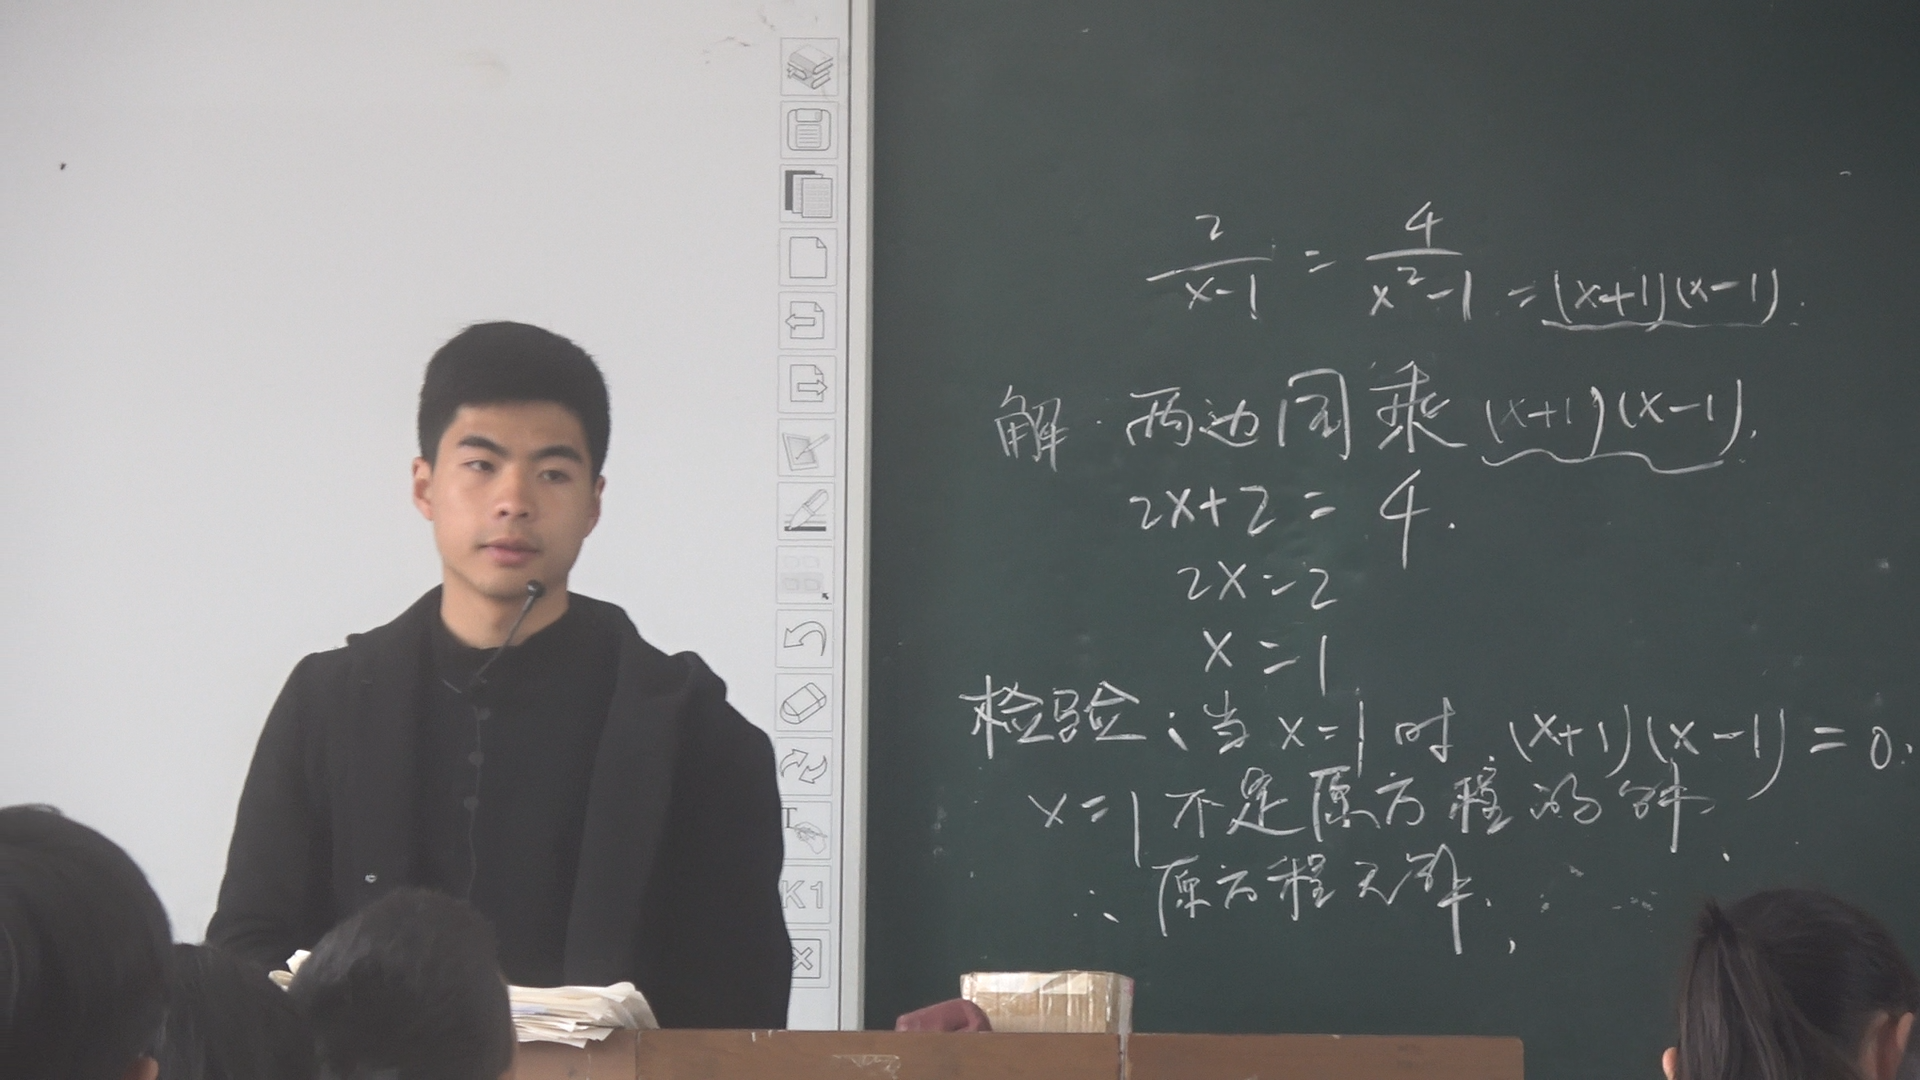 K1
2/(x-1) = 4/(x²-1) = (x+1)(x-1).
解:两边同乘(x+1)(x-1).
2x+2=4.
2x=2
x=1
检验:当x=1时,(x+1)(x-1)=0.
x=1不是原方程的解
∴原方程无解.